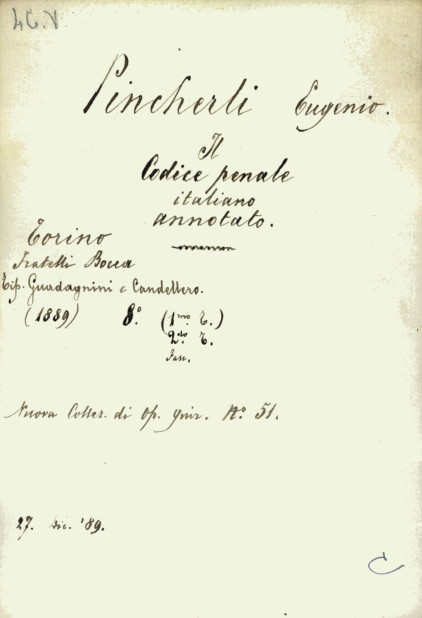 Pincherli Eugenio.
Il
Codice penale
italiano
annotato.
Torino
Fratelli Bocca
Tip. Guadagnini e Candellero.
(1889) 8.° (1.mo t.)
2.do t.
Nuova Collez. di Op. giur. N.° 51.
27. Dic. '89.
C